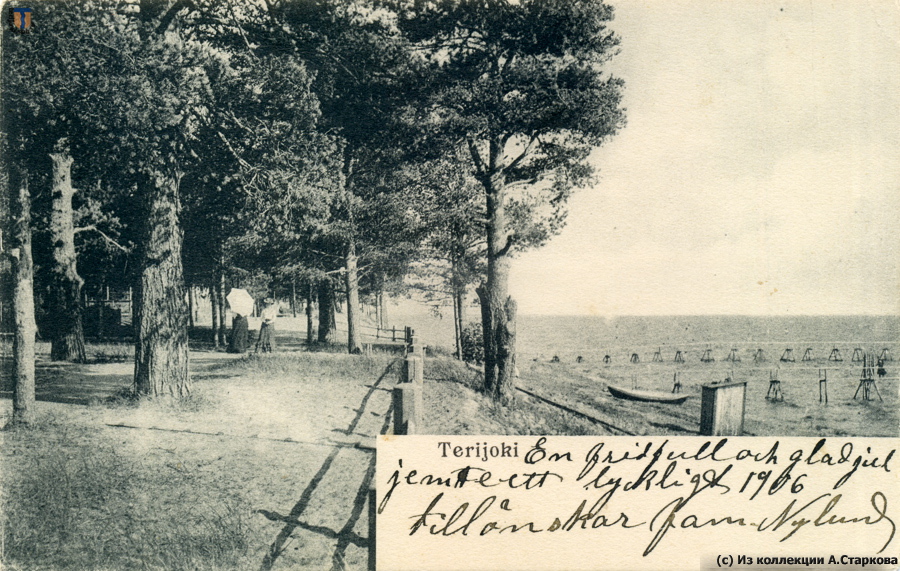 Terijoki En fridfull och glad jul
jemte ett lyckligt 1906
tillönskar fam. Nylund
(c) Из коллекции А.Старкова